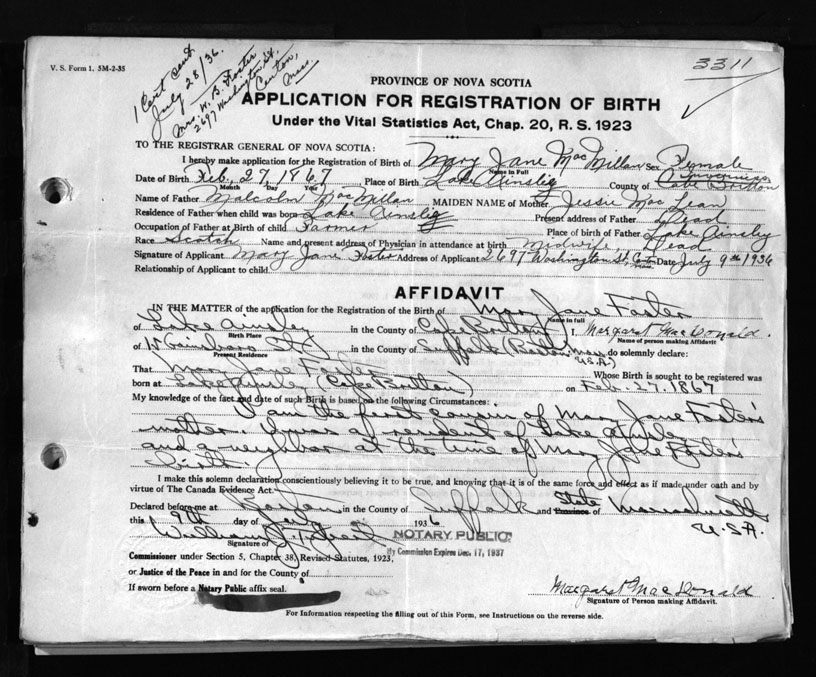 V. S. Form 1. 5M-2-35
1 Cert Sent
July 28/36.
Mrs. W. B. Foster
2697 Washington St.,
Canton,
Mass.
3311
PROVINCE OF NOVA SCOTIA
APPLICATION FOR REGISTRATION OF BIRTH
Under the Vital Statistics Act, Chap. 20, R. S. 1923
TO THE REGISTRAR GENERAL OF NOVA SCOTIA:
I hereby make application for the Registration of Birth of Mary Jane MacMillan Sex Female
Name in Full
Inverness
Date of Birth Feb. 27, 1867 Place of Birth Lake Ainslie County of Cape Britton
Month Day Year
Name of Father Malcolm MacMillan MAIDEN NAME of Mother Jessie MacLean
Residence of Father when child was born Lake Ainslie Present address of Father Dead
Occupation of Father at Birth of child Farmer Place of birth of Father Lake Ainsley
Race Scotch Name and present address of Physician in attendance at birth Midwife, Dead
Signature of Applicant Mary Jane Foster Address of Applicant 2697 Washington St, Canton Mass Date July 9th 1936
Relationship of Applicant to child
AFFIDAVIT
IN THE MATTER of the application for the Registration of the Birth of Mary Jane Foster
Name in full
of Lake Ainsley in the County of Cape Britton I, Margaret MacDonald.
Birth Place Name of person making Affidavit
of 15 Gainsboro St. in the County of Suffolk (Boston Mass. U.S.A.) do solemnly declare:
Present Residence
That Mary Jane Foster Whose Birth is sought to be registered was
born at Lake Aynsley (Cape Britton) on Feb. 27, 1867
My knowledge of the fact and date of such Birth is based on the following Circumstances:
I am the first cousin of Mary Jane Foster's
mother. I was a resident of Lake Aynsley
and a neighbor at the time of Mary Jane Foster's
birth.
I make this solemn declaration conscientiously believing it to be true, and knowing that it is of the same force and effect as if made under oath and by
virtue of The Canada Evidence Act.
Declared before me at Boston in the County of Suffolk and State Province of Massachusetts
this 9th day of July 1936 U.S.A.
William J.
NOTARY PUBLIC
My Commission Expires Dec. 17, 1937
Signature of
Commissioner under Section 5, Chapter 38, Revised Statutes, 1923,
or Justice of the Peace in and for the County of
If sworn before a Notary Public affix seal.
Margaret MacDonald
Signature of Person making Affidavit.
For Information respecting the filling out of this Form, see Instructions on the reverse side.